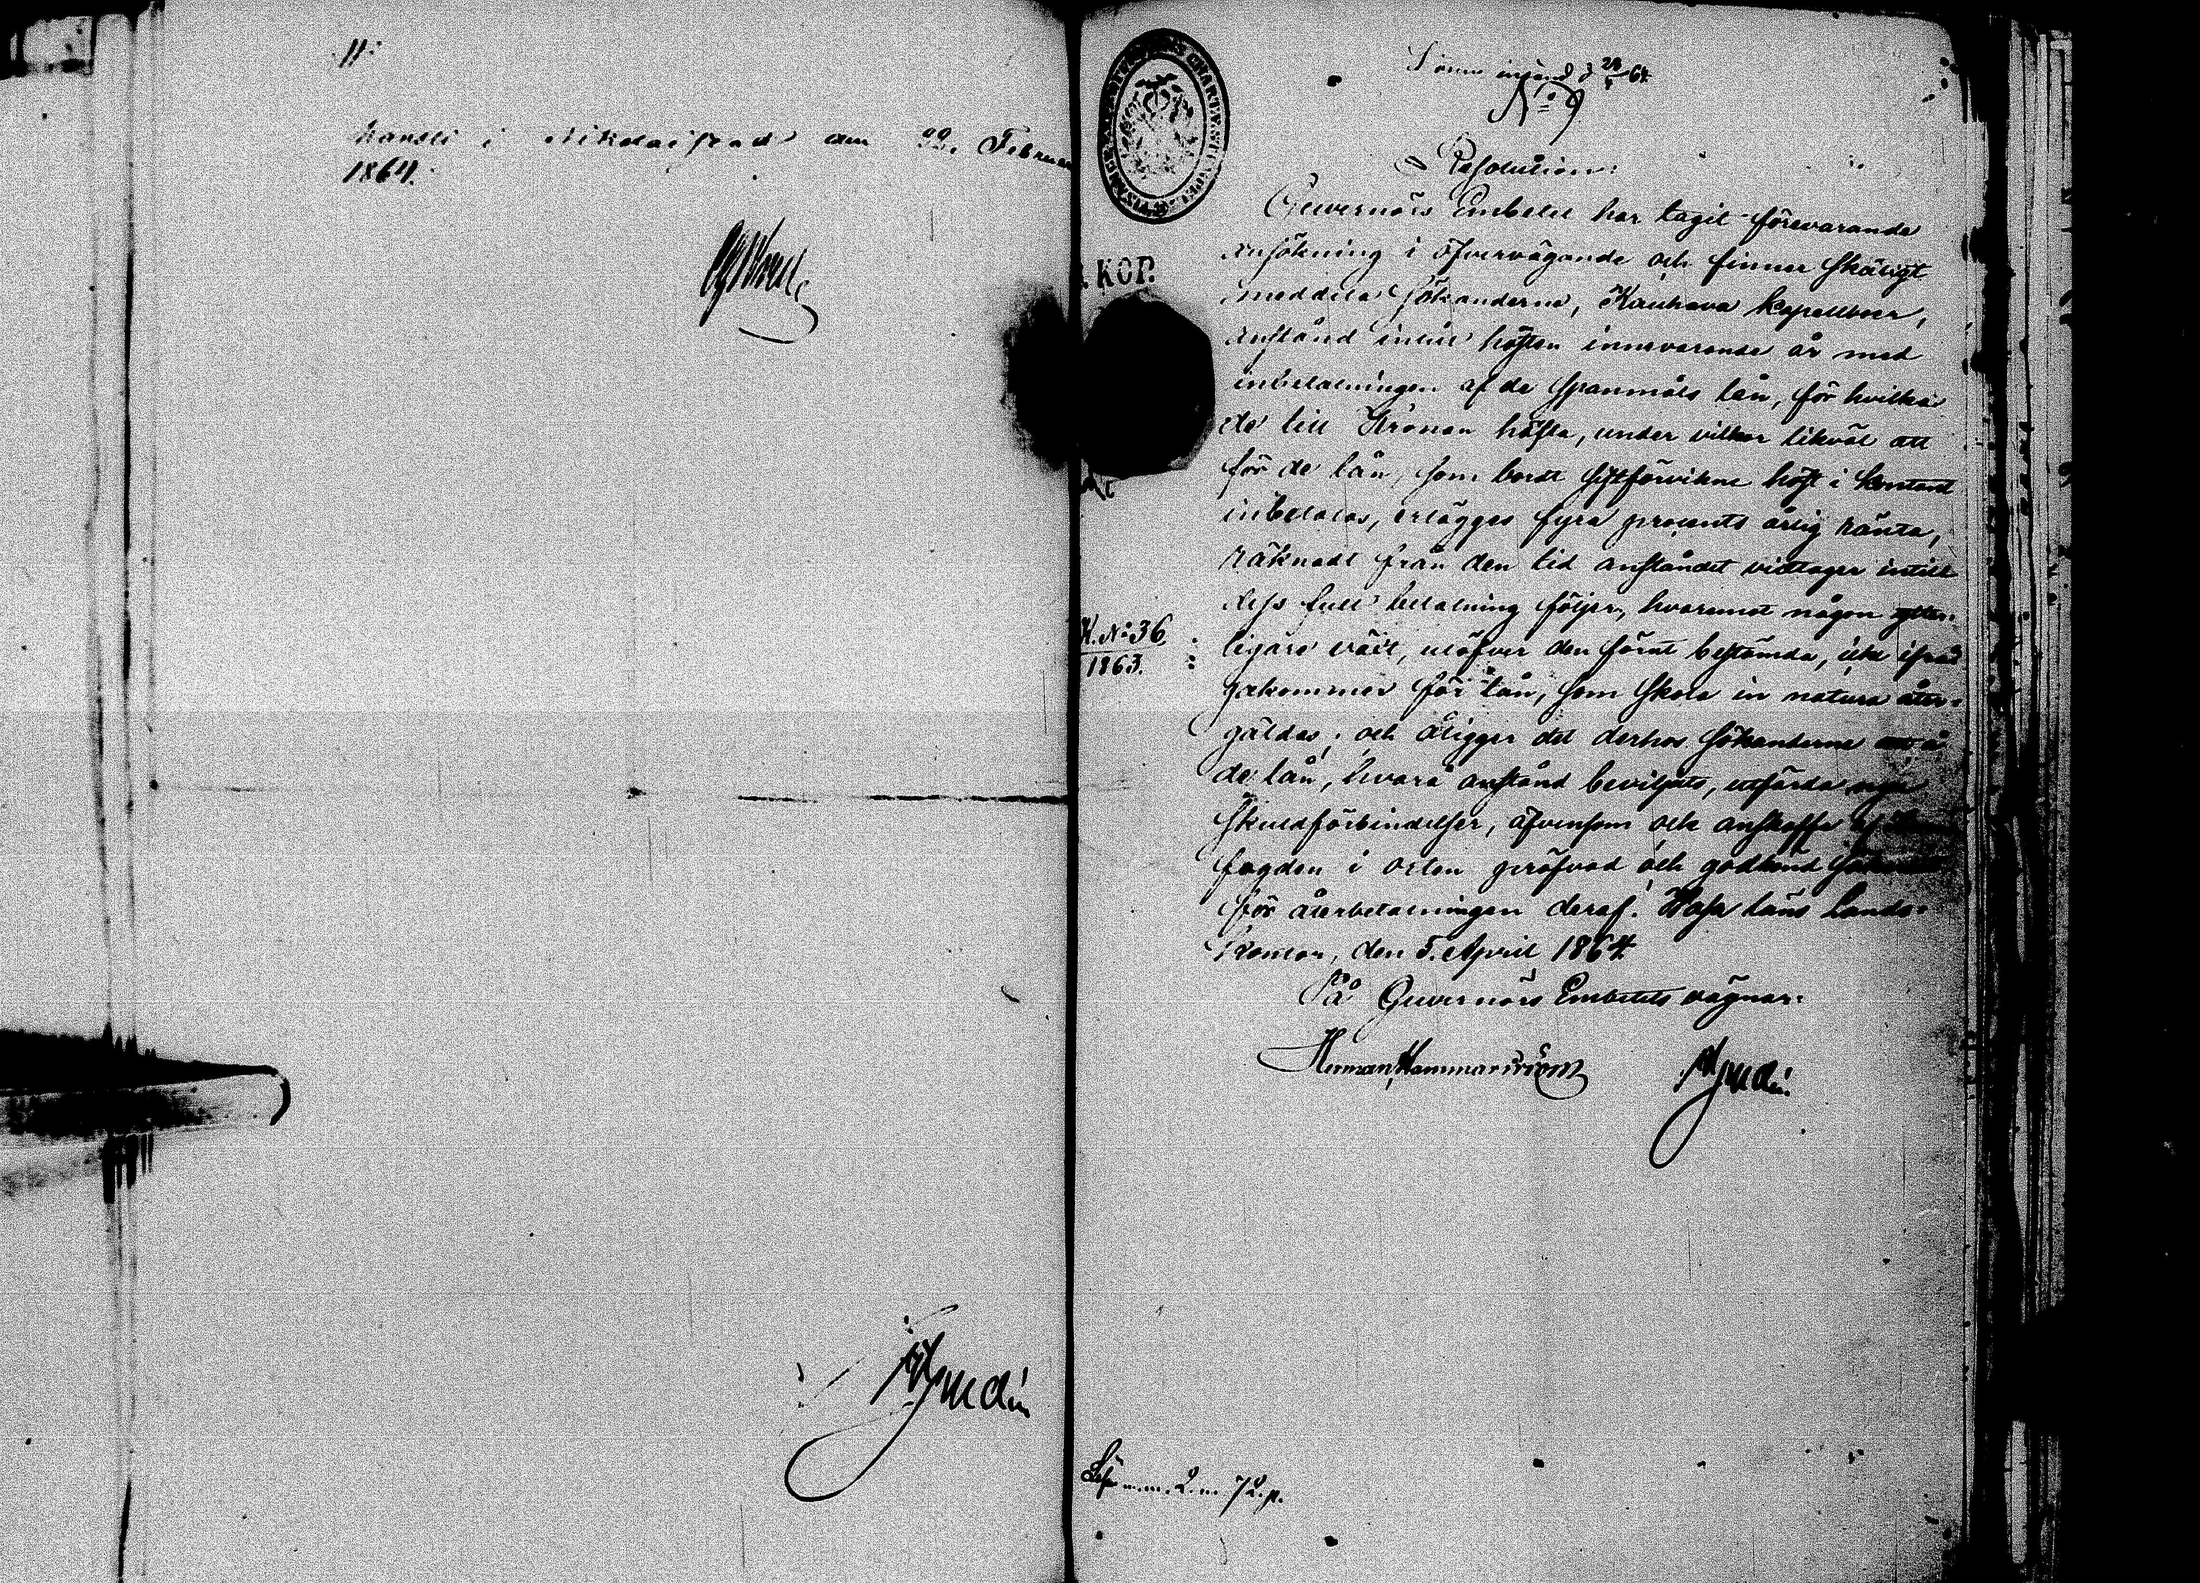 11.
Kansli i Nikolaistad den 22. Februari
1864.
insänd d 64.
N:o 9
Resolution:
KOP.
Guvernörs Embetet har tagit förevarande
ansökning i öfvervägande och finner skäligt
meddela sökanderne, Kauhava kapellboer,
anstånd intill hösten innevarande år med
inbetalningen af de spanmåls lån, för hvilka
de till Kronan häfta, under vilkor likväl att
för de lån, som bordt sistförvikne höst i kontant
inbetalas, erlägges fyra procents årlig ränta,
räknadt från den tid anståndet vidtager intill
dess full betalning följer, hvaremot någon ytter-
K. N:o 36
1863.
ligare växt, utöfver den förut bestämda, icke ifråga-
kommer för lån, som skola in natura åter-
gäldas; och åligger det derhos sökanderne att å
de lån, hvarå anstånd beviljats, utfärda nya
skuldförbindelser, äfvensom och anskaffa af
fogden i orten pröfvad och godkänd
för återbetalningen deraf. Wasa läns Lands-
kontor, den 5. April 1864.
På Guvernörs Embetets vägnar:
Herman Hammarström
2 m. 72 p.